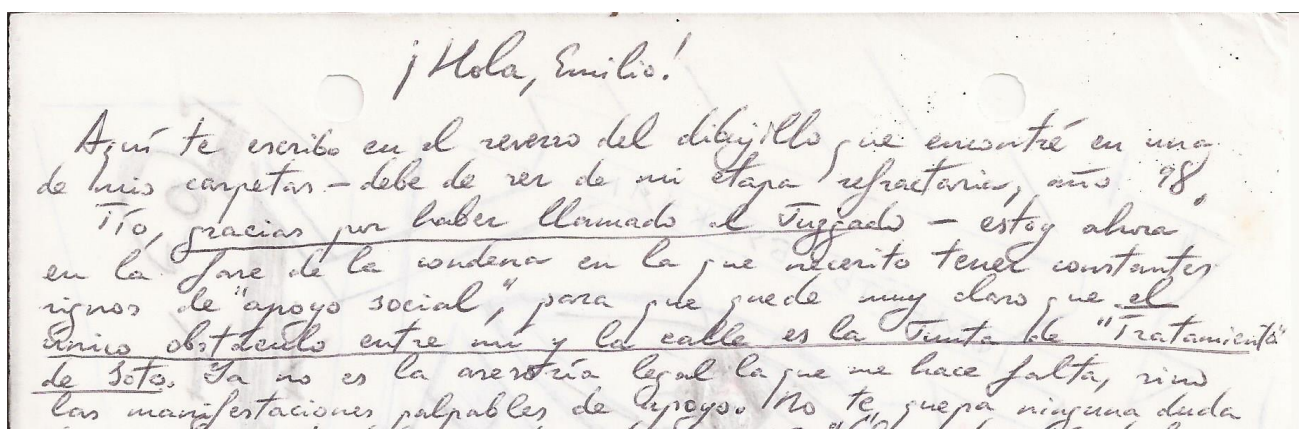 ¡Hola, Emilio!
Aquí te escribo en el reverso del dibujillo que encontré en una
de mis carpetas – debe de ser de mi etapa refractaria, año 98.
Tío, gracias por haber llamado al Juzgado – estoy ahora
en la fase de la condena en la que necesito tener constantes
signos de "apoyo social," para que quede muy claro que el
único obstáculo entre mí y la calle es la Junta de "Tratamiento"
de Soto. Ya no es la asesoría legal la que me hace falta, sino
las manifestaciones palpables de apoyo. No te quepa ninguna duda